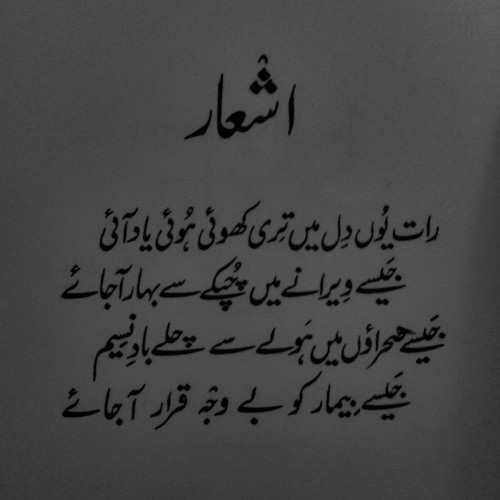 اشعار
رات یُوں دِل میں تِری کھوئی ہُوئی یاد آئی
جَیسے وِیرانے میں چُپکے سے بہار آجائے
جَیسے صحراؤں میں ہَولے سے چلے بادِ نسیم
جَیسے بِیمار کو بے وجْہ قرار آجائے